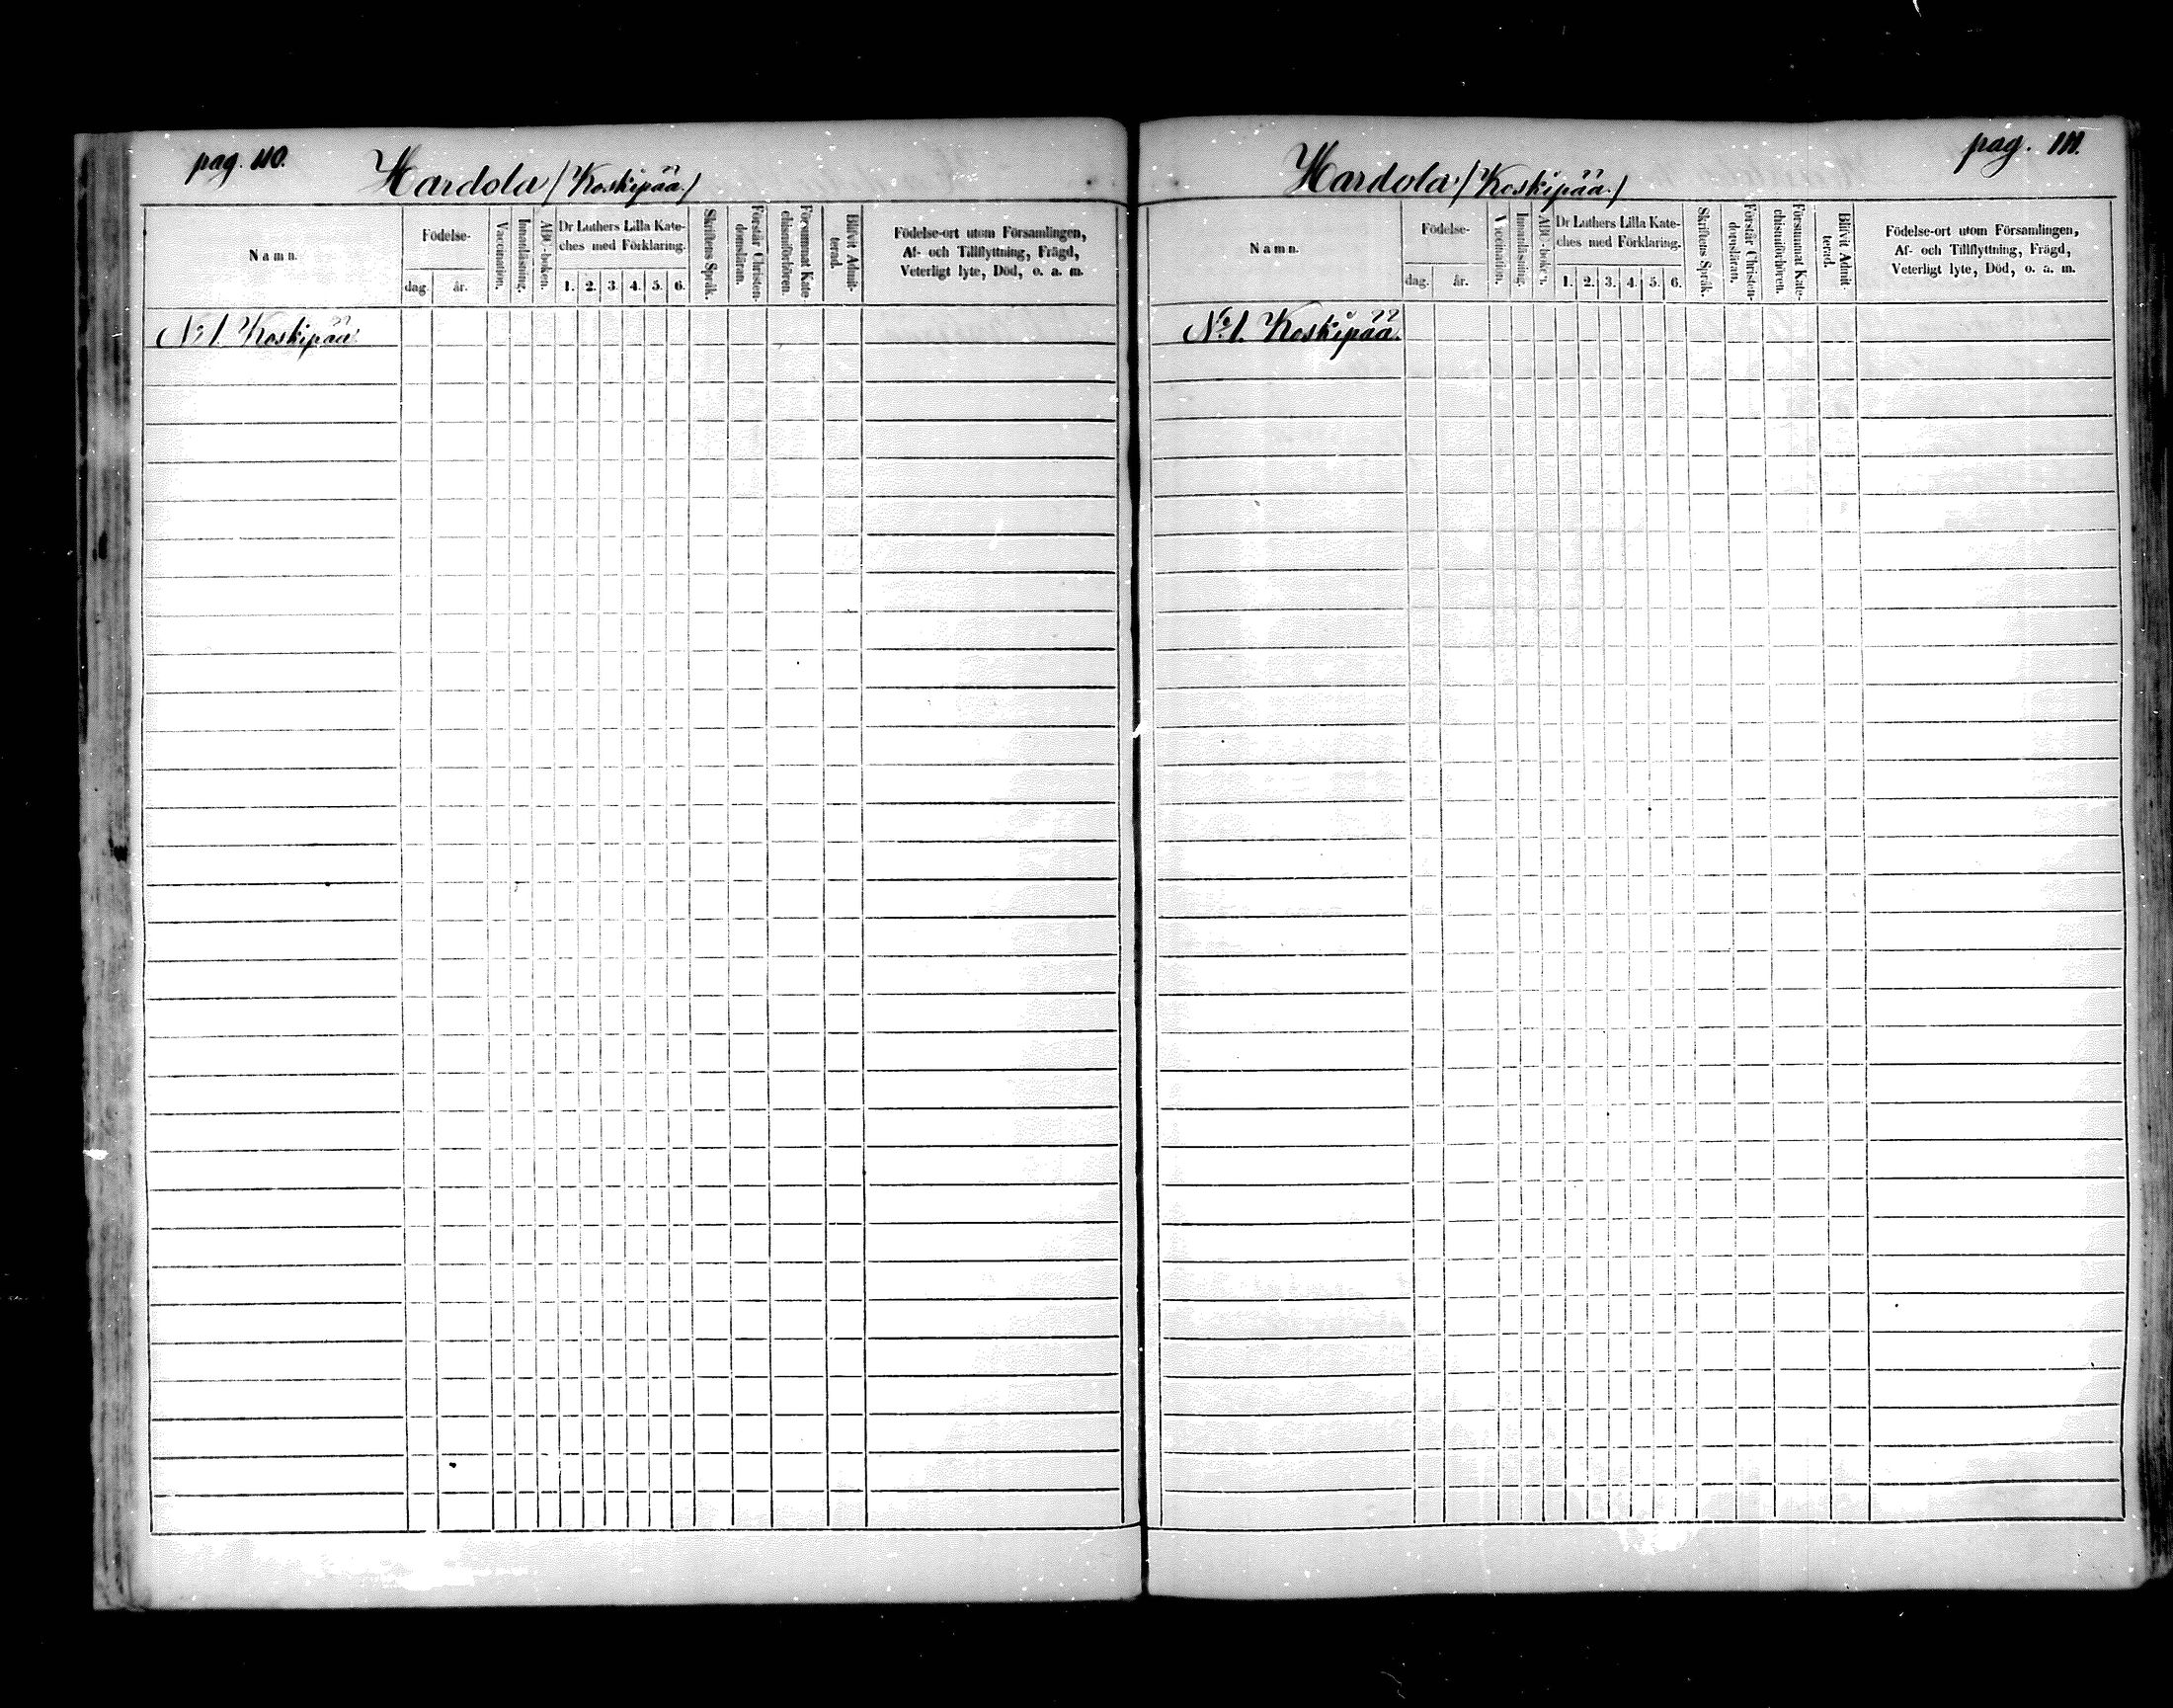 pag. 110.
Hardola (Koskipää.)
Namn.
Födelse-
dag.
år.
Vaccination.
Innanläsning.
ABC-boken.
Dr Luthers Lilla Kate-
ches med Förklaring.
1. 2. 3. 4. 5. 6.
Skriftens Språk.
Förstår Christen-
domsläran.
Försummat Kate
chismiförhören.
Blifvit Admit-
terad.
Födelse-ort utom Församlingen,
Af- och Tillflyttning, Frägd,
Veterligt lyte, Död, o. a. m.
No 1. Koskipää.
pag. 111.
Hardola (Koskipää.)
Namn.
Födelse-
dag.
år.
Vaccination.
Innanläsning.
ABC-boken.
Dr Luthers Lilla Kate-
ches med Förklaring.
1. 2. 3. 4. 5. 6.
Skriftens Språk.
Förstår Christen-
domsläran.
Försummat Kate-
chismiförhören.
Blifvit Admit-
terad.
Födelse-ort utom Församlingen,
Af- och Tillflyttning, Frägd,
Veterligt lyte, Död, o. a. m.
No 1. Koskipää.